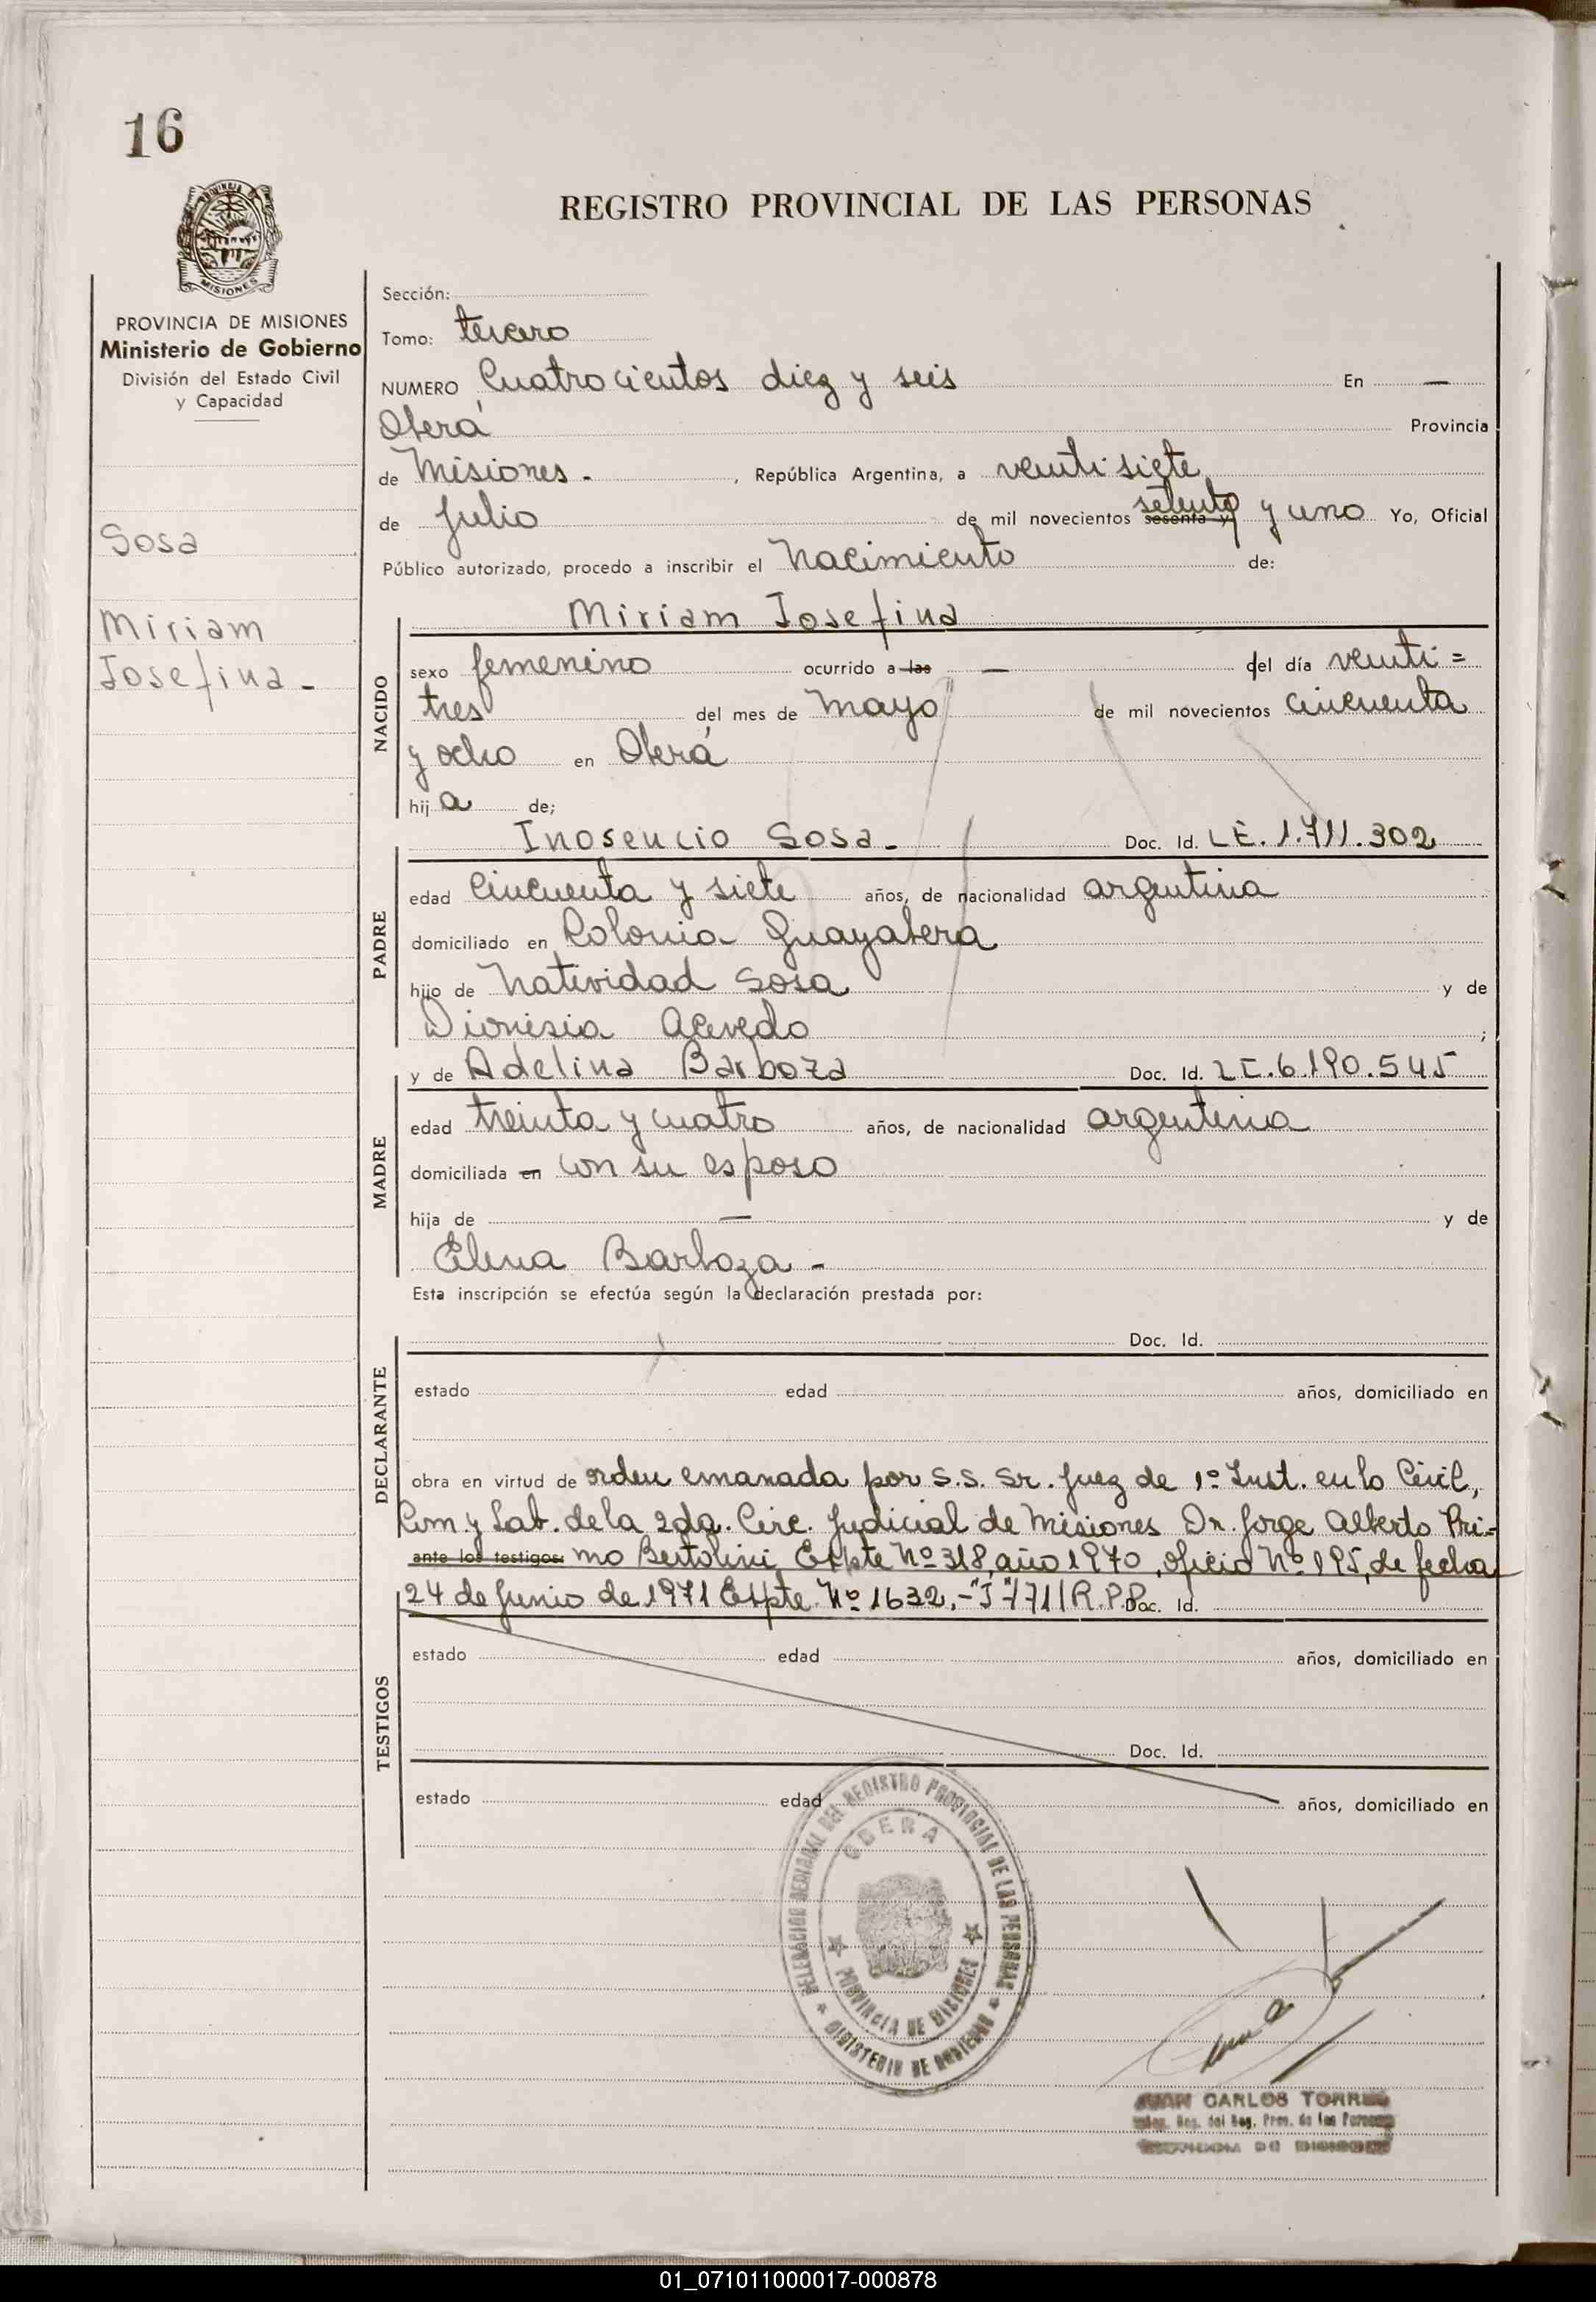 16
REGISTRO PROVINCIAL DE LAS PERSONAS
PROVINCIA DE MISIONES
Ministerio de Gobierno
División del Estado Civil
y Capacidad
Sosa
Miriam
Josefina -
Sección:
Tomo: tercero
NUMERO Cuatrocientos diez y seis En —
Oberá Provincia
de Misiones - , República Argentina, a veinti siete
de Julio de mil novecientos sesenta y setenta y uno Yo, Oficial
Público autorizado, procedo a inscribir el Nacimiento de:
Miriam Josefina
NACIDO
sexo femenino ocurrido a las — del día veinti =
tres del mes de Mayo de mil novecientos cincuenta
y ocho en Oberá
hij a de;
Inosencio Sosa - Doc. Id. L.E. 1.711.302
PADRE
edad cincuenta y siete años, de nacionalidad argentina
domiciliado en Colonia Guayabera
hijo de Natividad Sosa y de
Dionisia Acevedo ;
y de Adelina Barboza Doc. Id. L.E. 6.190.545
MADRE
edad treinta y cuatro años, de nacionalidad argentina
domiciliada en con su esposo
hija de — y de
Elena Barboza -
Esta inscripción se efectúa según la declaración prestada por:
Doc. Id.
DECLARANTE
estado edad años, domiciliado en
obra en virtud de orden emanada por S.S. Sr. Juez de 1º Inst. en lo Civil,
Com y Lab. de la 2da. Circ. Judicial de Misiones Dr. Jorge Alberto Pri-
ante los testigos: mo Bertolini Expte Nº 318, año 1970, oficio Nº 195, de fecha
24 de Junio de 1971 Expte. Nº 1632, -"J"/71/R.P.P. Doc. Id.
TESTIGOS
estado edad años, domiciliado en
Doc. Id.
estado edad años, domiciliado en
DELEGACION DEL REGISTRO PROVINCIAL DE LAS PERSONAS
OBERA
PROVINCIA DE MISIONES
MINISTERIO DE GOBIERNO
JUAN CARLOS TORRES
del Reg. Prov. de las Personas
01_071011000017-000878